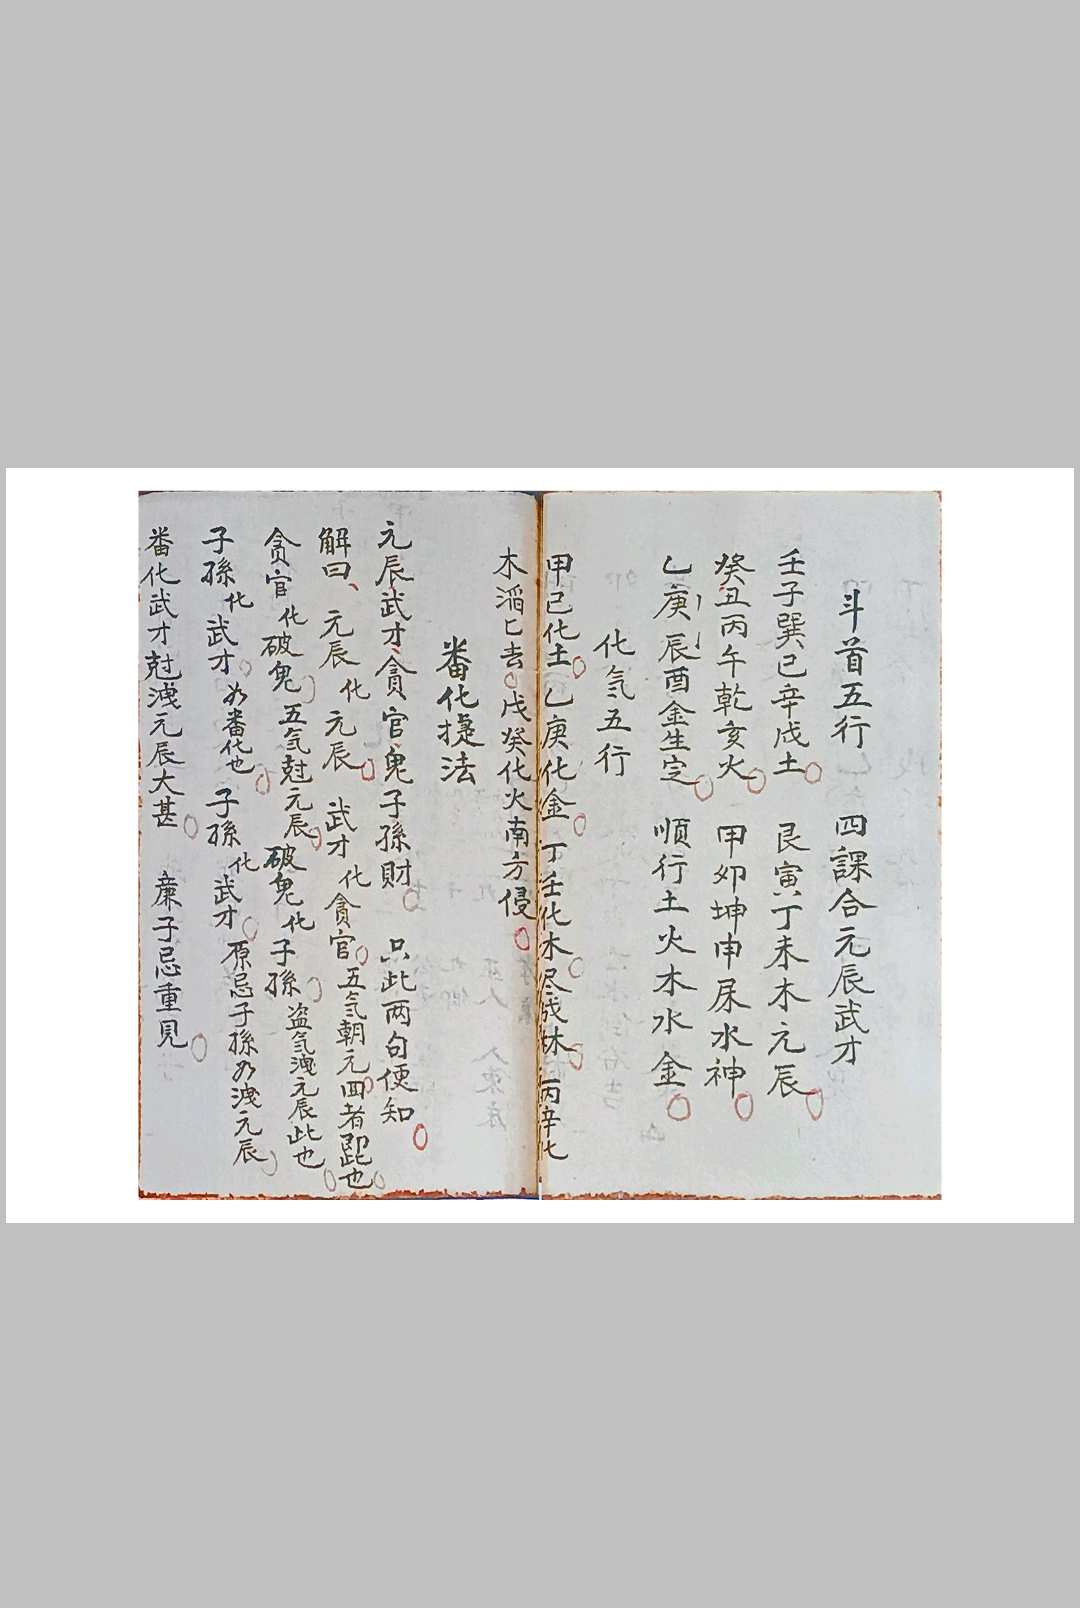 斗首五行 四課合元辰武才
壬子巽巳辛戌土 艮寅丁未木元辰
癸丑丙午乾亥火 甲卯坤申屎水神
乙庚辰酉金生定 順行土火木水金
化気五行
甲己化土 乙庚化金 丁壬化木尽成林 丙辛化
木滔乚去 戊癸化火南方侵
番化捷法
元辰武才貪官鬼子孫財 只此两句便知
解曰、元辰化元辰 武才化貪官 五気朝元回者即也
貪官化破鬼 五気尅元辰 破鬼化子孫 盗気洩元辰此也
子孫化武才 为番化也 子孫化武才 原忌子孫为洩元辰
番化武才尅洩元辰大甚 廉子忌重見